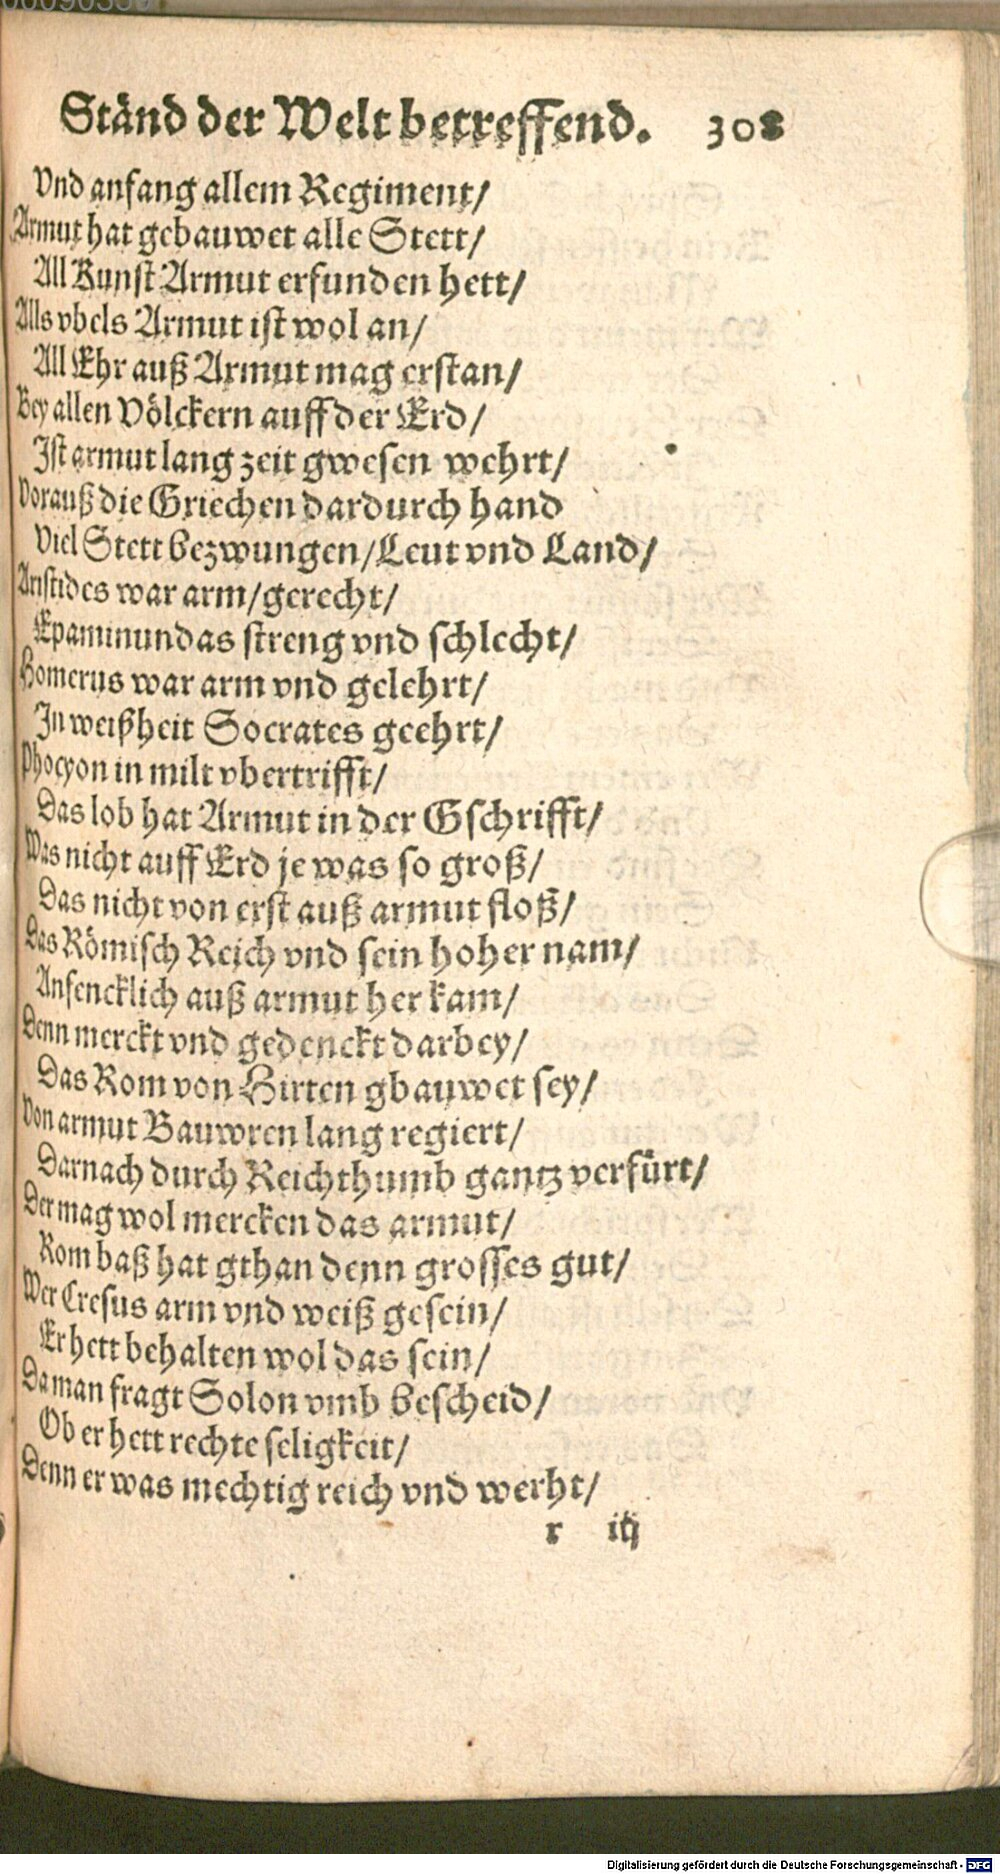 Ständ der Welt betreffend. 308
Vnd anfang allem Regiment/
Armut hat gebauwet alle Stett/
All Kunst Armut erfunden hett/
Alls vbels Armut ist wol an/
All Ehr auß Armut mag erstan/
Bey allen Völckern auff der Erd/
Ist armut lang zeit gwesen wehrt/
Vorauß die Griechen dardurch hand
Viel Stett bezwungen/Leut vnd Land/
Aristides war arm/gerecht/
Epaminundas streng vnd schlecht/
Homerus war arm vnd gelehrt/
In weißheit Socrates geehrt/
Phocyon in milt vbertrifft/
Das lob hat Armut in der Gschrifft/
Was nicht auff Erd je was so groß/
Das nicht von erst auß armut floß/
Das Römisch Reich vnd sein hoher nam/
Anfencklich auß armut her kam/
Denn merckt vnd gedenckt darbey/
Das Rom von Hirten gbauwet sey/
Von armut Bauwren lang regiert/
Darnach durch Reichthumb gantz verfürt/
Der mag wol mercken das armut/
Rom baß hat gthan denn grosses gut/
Wer Cresus arm vnd weiß gesein/
Er hett behalten wol das sein/
Da man fragt Solon vmb bescheid/
Ob er hett rechte seligkeit/
Denn er was mechtig reich vnd werht/
r iij
Digitalisierung gefördert durch die Deutsche Forschungsgemeinschaft - DFG